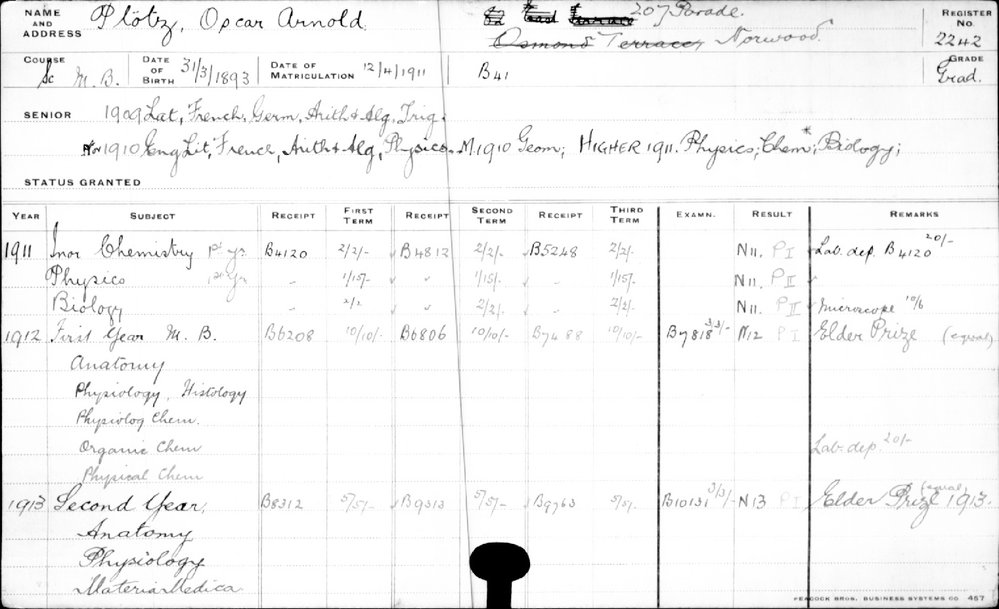 NAME AND ADDRESS Plötz, Oscar Arnold. East Terrace 207 Parade. REGISTER No.
Osmond Terrace, Norwood. 2242
COURSE Sc M.B. DATE OF BIRTH 31/3/1893 DATE OF MATRICULATION 12/4/1911 B41 GRADE Grad.
SENIOR 1909 Lat, French, Germ, Arith & Alg, Trig.
Nov 1910 Eng Lit, French, Arith & Alg, Physics. M.1910 Geom; HIGHER 1911. Physics; Chem*; Biology;
STATUS GRANTED
YEAR SUBJECT RECEIPT FIRST TERM RECEIPT SECOND TERM RECEIPT THIRD TERM EXAMN. RESULT REMARKS
1911 Inor Chemistry 1st yr B4120 2/2/- B4812 2/2/- B5248 2/2/- N11. P I Lab. dep. B4120 20/-
Physics 1st yr " 1/15/- " 1/15/- 1/15/- N11. P II
Biology " 2/2 " 2/2/- 2/2/- N11. P II Microscope 10/6
1912 First Year M.B. B6208 10/10/- B6806 10/10/- B7488 10/10/- B7818 3/3/- N12 P I Elder Prize (equal)
Anatomy
Physiology, Histology
Physiolog Chem.
Organic Chem Lab. dep. 20/-
Physical Chem
1913 Second Year, B8312 5/5/- B9313 5/5/- B9763 5/5/- B10131 3/3/- N13 P I Elder Prize (equal) 1913.
Anatomy
Physiology
Materia Medica
PEACOCK BROS. BUSINESS SYSTEMS CO. 457